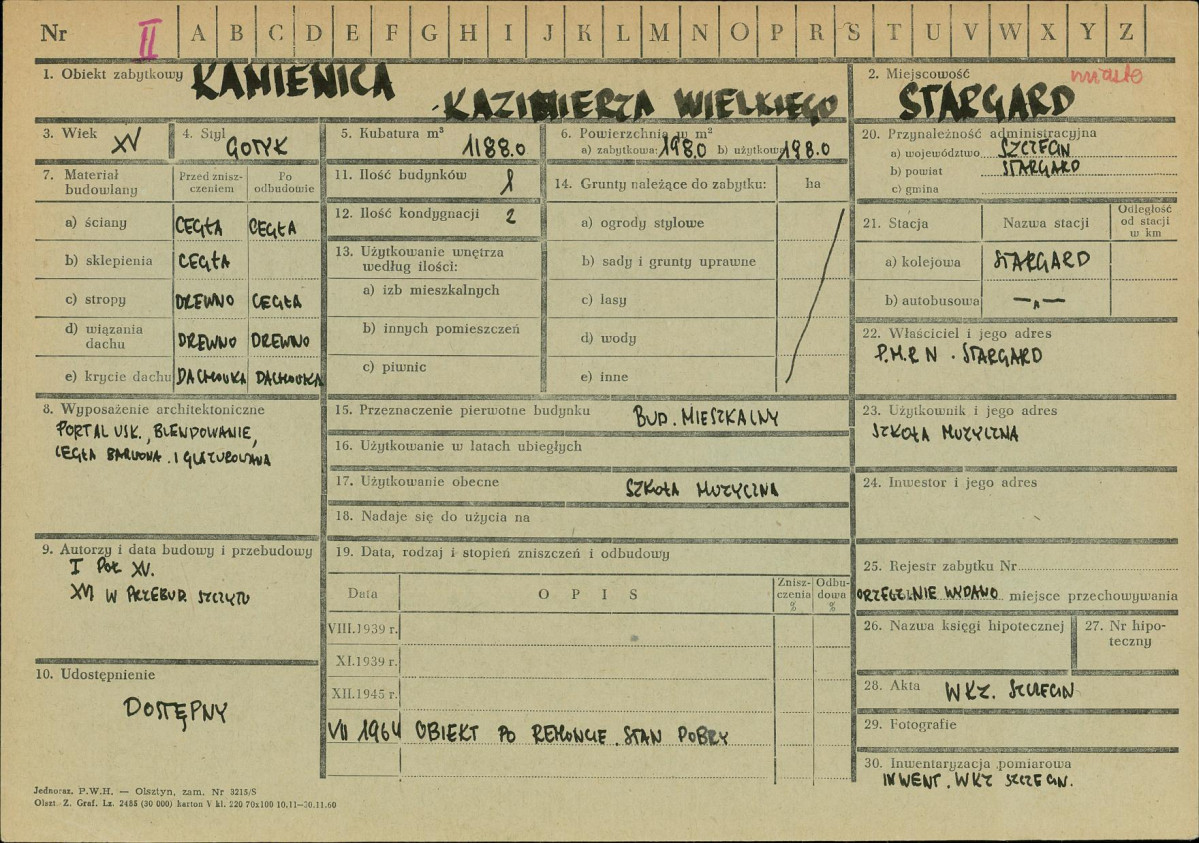 Nr II A B C D E F G H I J K L M N O P R S T U V W X Y Z
1. Obiekt zabytkowy KAMIENICA
KAZIMIERZA WIELKIEGO
2. Miejscowość miasto
STARGARD
3. Wiek XV
4. Styl GOTYK
5. Kubatura m³ 1188.0
6. Powierzchnia w m²
a) zabytkowa: 198.0 b) użytkowa 198.0
7. Materiał budowlany
Przed zniszczeniem
Po odbudowie
a) ściany CEGŁA CEGŁA
b) sklepienia CEGŁA
c) stropy DREWNO CEGŁA
d) wiązania dachu DREWNO DREWNO
e) krycie dachu DACHÓWKA DACHÓWKA
8. Wyposażenie architektoniczne
PORTAL USK., BLENDOWANIE,
CEGŁA BARWONA. I GLAZUROWANA
9. Autorzy i data budowy i przebudowy
I POŁ XV.
XVI W PRZEBUD. SZCZYTU
10. Udostępnienie
DOSTĘPNY
11. Ilość budynków 1
12. Ilość kondygnacji 2
13. Użytkowanie wnętrza
według ilości:
a) izb mieszkalnych
b) innych pomieszczeń
c) piwnic
14. Grunty należące do zabytku: ha
a) ogrody stylowe
b) sady i grunty uprawne
c) lasy
d) wody
e) inne
15. Przeznaczenie pierwotne budynku BUD. MIESZKALNY
16. Użytkowanie w latach ubiegłych
17. Użytkowanie obecne SZKOŁA MUZYCZNA
18. Nadaje się do użycia na
19. Data, rodzaj i stopień zniszczeń i odbudowy
Data OPIS Zniszczenia % Odbudowa %
VIII.1939 r.
XI.1939 r.
XII.1945 r.
VII 1964 OBIEKT PO REMONCIE. STAN DOBRY
20. Przynależność administracyjna
a) województwo SZCZECIN
b) powiat STARGARD
c) gmina
21. Stacja Nazwa stacji Odległość od stacji w km
a) kolejowa STARGARD
b) autobusowa —„—
22. Właściciel i jego adres
P.M.R N. STARGARD
23. Użytkownik i jego adres
SZKOŁA MUZYCZNA
24. Inwestor i jego adres
25. Rejestr zabytku Nr
ORZECZENIE WYDANO miejsce przechowywania
26. Nazwa księgi hipotecznej
27. Nr hipoteczny
28. Akta WKZ. SZCZECIN
29. Fotografie
30. Inwentaryzacja pomiarowa
INWENT. WKZ SZCZECIN.
Jednoraz. P.W.H. — Olsztyn, zam. Nr 3215/S
Olszt. Z. Graf. Lz. 2485 (30 000) karton V kl. 220 70x100 10.11—30.11.60